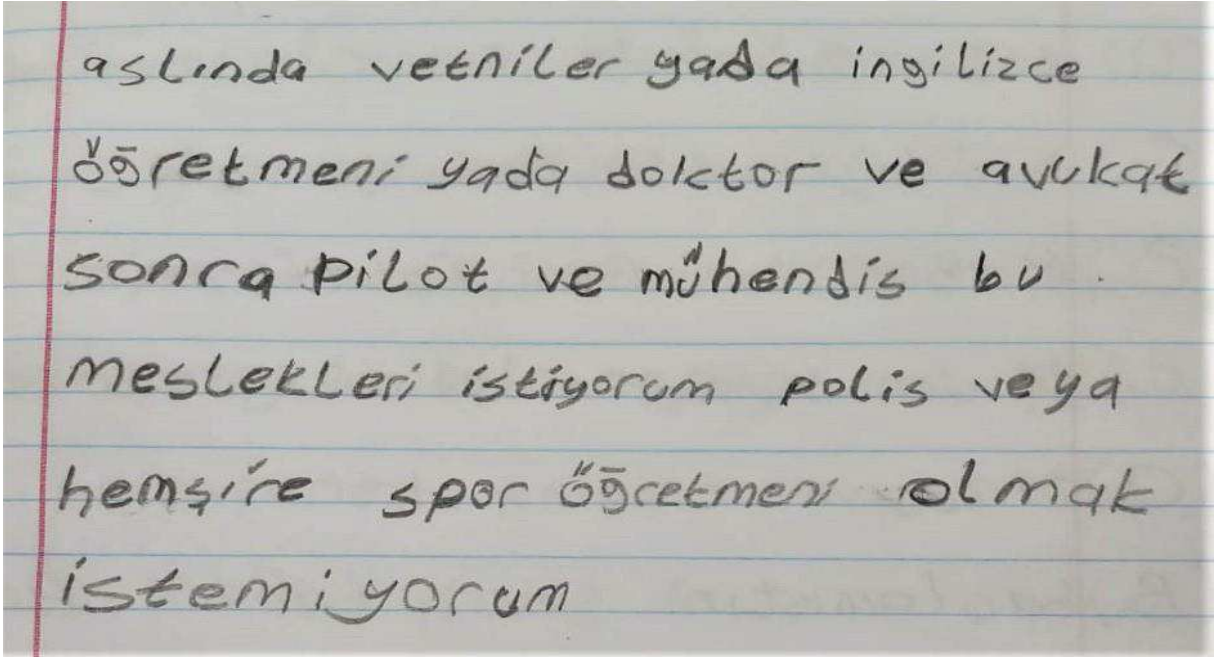 aslında vetniler yada ingilizce
öğretmeni yada doktor ve avukat
sonra pilot ve mühendis bu
meslekleri istiyorum polis veya
hemşire spor öğretmeni olmak
istemiyorum